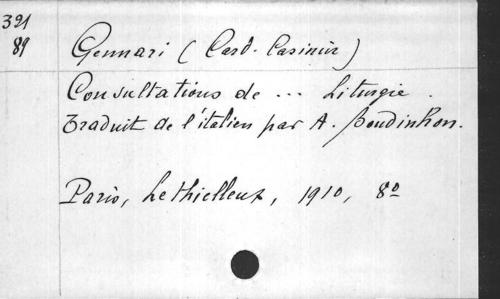 391
89
Gennari (Card. Casimir)
Consultations de ... Liturgie.
Traduit de l'italien par A. Boudinhon.
Paris, Lethielleux, 1910, 8º